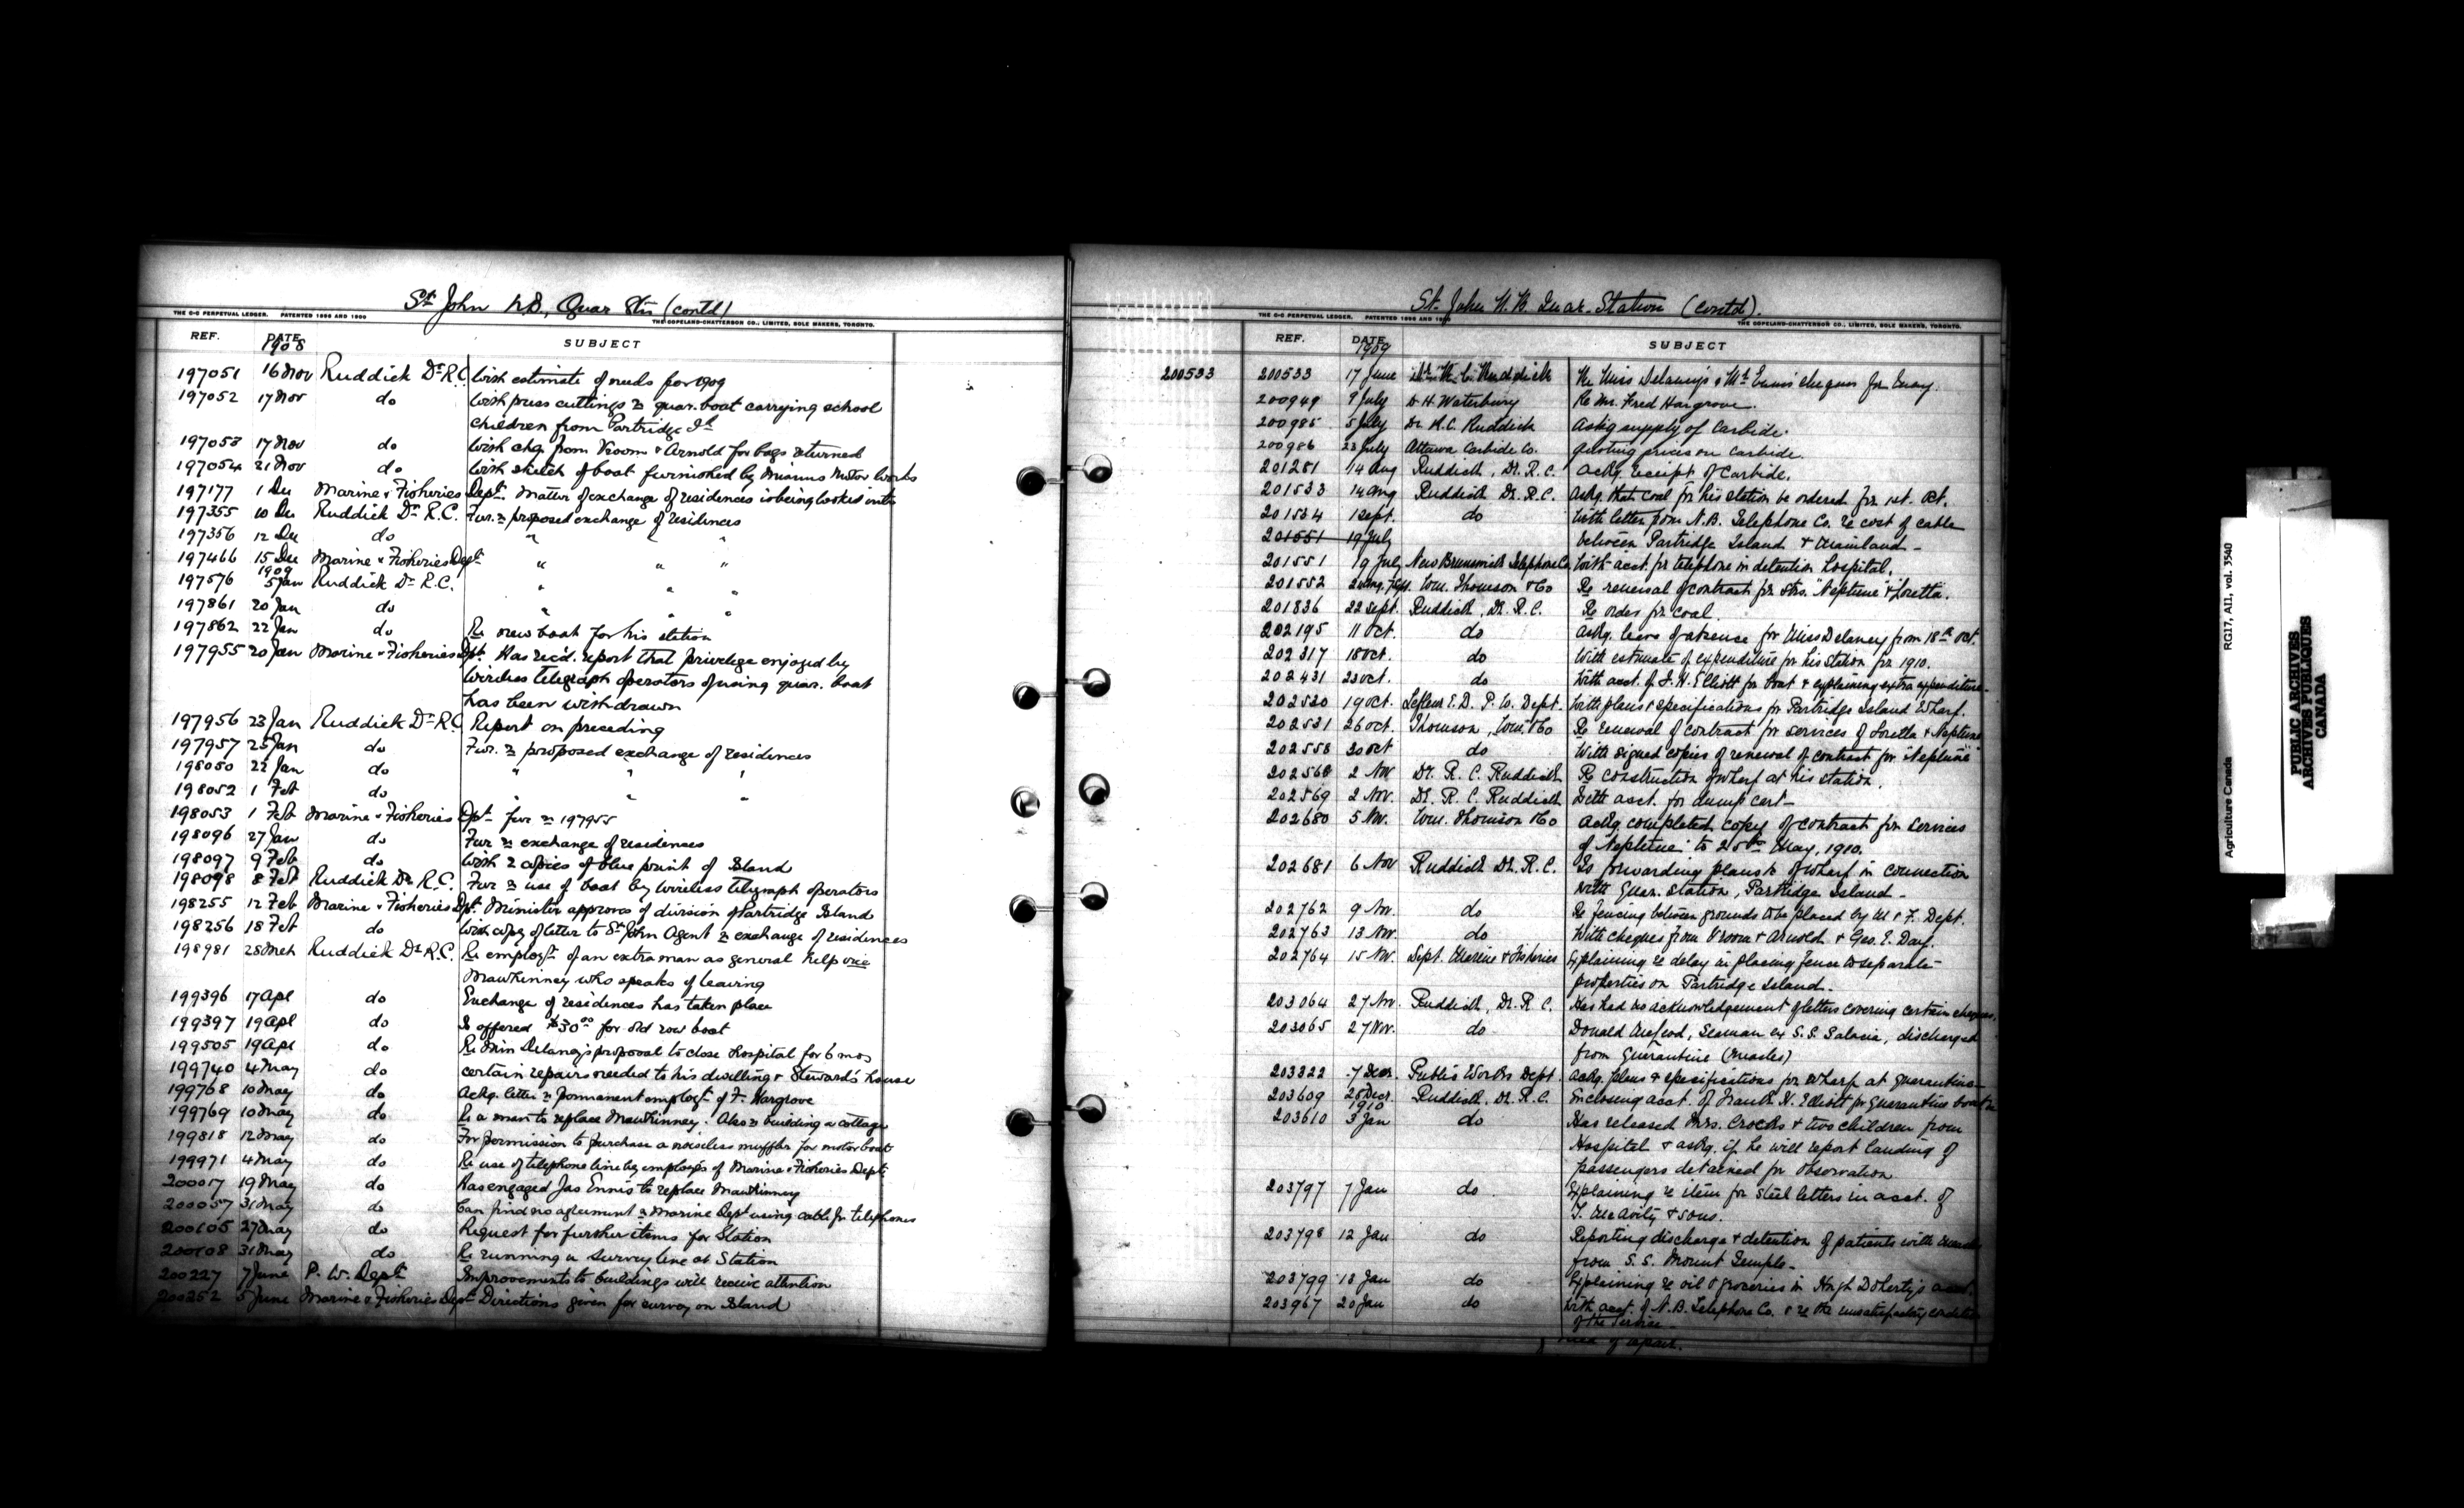 St John N.B., Quar Stn (contd)
THE C-C PERPETUAL LEDGER. PATENTED 1896 AND 1899
THE COPELAND-CHATTERSON CO., LIMITED, SOLE MAKERS, TORONTO.
REF. DATE SUBJECT
1908
197051 16 Nov Ruddick Dr R.C. With estimate of needs for 1909
197052 17 Nov do With press cuttings re quar. boat carrying school
children from Partridge Id
197053 17 Nov do With chq. from Vroom & Arnold for bags returned
197054 21 Nov do With sketch of boat furnished by Mianus Motor Works
197177 1 Dec Marine & Fisheries Dept. Matter of exchange of residences is being looked into
197355 10 Dec Ruddick Dr R.C. Fur. re proposed exchange of residences
197356 12 Dec do " "
197466 15 Dec Marine & Fisheries Dept " " "
1909
197576 5 Jan Ruddick Dr R.C. " " "
197861 20 Jan do " "
197862 22 Jan do Re new boat for his station
197955 20 Jan Marine & Fisheries Dpt. Has recd. report that privelege enjoyed by
wireless telegraph operators of using quar. boat
has been withdrawn
197956 23 Jan Ruddick Dr R.C. Report on preceding
197957 25 Jan do Fur. re proposed exchange of residences
198050 22 Jan do " " "
198052 1 Feb do " " "
198053 1 Feb Marine & Fisheries Dpt fur re 197955
198096 27 Jan do Fur re exchange of residences
198097 9 Feb do With 2 copies of blue print of Island
198098 8 Feb Ruddick Dr R.C. Fur re use of boat by wireless telegraph operators
198255 12 Feb Marine & Fisheries Dpt. Minister approves of division of Partridge Island
198256 18 Feb do With copy of letter to St John Agent re exchange of residences
198981 25 Mch Ruddick Dr R.C. Re employt. of an extra man as general help vice
Mawhinney who speaks of leaving
199396 17 Apl do Exchange of residences has taken place
199397 19 Apl do Is offered $30.00 for old row boat
199505 19 Apl do Re Miss Delaney's proposal to close Hospital for 6 mos
199740 4 May do certain repairs needed to his dwelling & Steward's house
199768 10 May do Ackg. letter re permanent employt of F. Hargrove
199769 10 May do Re a man to replace Mawhinney. Also re building a cottage
199818 12 May do For permission to purchase a noiseless muffler for motor boat
199971 4 May do Re use of telephone line by employés of Marine & Fisheries Dept.
200017 19 May do Has engaged Jas Ennis to replace Mawhinney
200057 31 May do Can find no agreement re Marine Dept using cable for telephones
200105 27 May do Request for further items for Station
200108 31 May do Re running a survey line at Station
200227 7 June P. W. Dept Improvements to buildings will receive attention
200252 5 June Marine & Fisheries Dept Directions given for survey on Island
St. John N.B. Quar. Station (contd).
THE C-C PERPETUAL LEDGER. PATENTED 1896 AND 1899
THE COPELAND-CHATTERSON CO., LIMITED, SOLE MAKERS, TORONTO.
REF. DATE SUBJECT
1909
200533 200533 17 June Dr. R. C. Ruddick Re Miss Delaney's & Mr. Ennis cheques for
200949 9 July D. H. Waterbury Re Mr. Fred Hargrove.
200985 5 July Dr R.C. Ruddick Askg supply of Carbide.
200986 23 July Ottawa Carbide Co. Quoting prices on carbide.
201281 14 Aug Ruddick, Dr. R. C. Ackg. receipt of Carbide.
201533 14 Aug Ruddick Dr. R.C. Askg. that coal for his station be ordered for 1st. Oct.
201534 1 Sept. do With letter from N.B. Telephone Co. re cost of cable
201551 19 July between Partridge Island & Mainland -
201551 19 July New Brunswick Telephone Co. With acct. for telephone in detention Hospital.
201552 Wm. Thomson & Co Re renewal of contract for Strs. "Neptune" & "Loretta".
201836 22 Sept. Ruddick, Dr. R.C. Re order for coal.
202195 11 Oct. do Askg. leave of absence for Miss Delaney from 18th Oct.
202317 18 Oct. do With estimate of expenditure for his station for 1910.
202431 23 Oct. do With acct. of F. H. Elliott for boat & explaining extra expenditure.
202530 19 Oct. Lafleur E.D. P. W. Dept. With plans & specifications for Partridge Island Wharf.
202531 26 Oct. Thomson, Wm. & Co Re renewal of contract for services of Loretta & Neptune
202558 30 Oct do With signed copies of renewal of contract for "Neptune"
202568 2 Nov Dr. R. C. Ruddick Re construction of wharf at his station.
202569 2 Nov. Dr. R. C. Ruddick With acct. for dump cart -
202680 5 Nov. Wm. Thomson & Co Ackg completed copy of contract for services
of Neptune to 25th May, 1910.
202681 6 Nov Ruddick Dr. R.C. Is forwarding plans re of wharf in connection
with Quar. station, Partridge Island -
202762 9 Nov. do Re fencing between grounds to be placed by M & F. Dept.
202763 13 Nov. do With cheques from Vroom & Arnold & Geo. E. Day.
202764 15 Nov. Dept. Marine & Fisheries Explaining re delay in placing fence to separate
properties on Partridge Island.
203064 27 Nov. Ruddick, Dr. R.C. Has had no acknowledgement of letters covering certain cheques.
203065 27 Nov. do Donald McLeod, Seaman ex S.S. Salacia, discharged
from Quarantine (measles)
203322 7 Decr. Public Works Dept. Ackg. plans & specifications for Wharf at quarantine
203609 28 Decr. Ruddick, Dr. R.C. Enclosing acct. of Frank H. Elliott for Quarantine boat
1910
203610 3 Jan do Has released Mrs. Crooks & two children from
Hospital & askg. if he will report landing of
passengers detained for observation
203797 7 Jan do Explaining re item for steel letters in acct. of
T. McAvity & sons.
203798 12 Jan do Reporting discharge & detention of patients with
from S.S. Mount Temple -
203799 13 Jan do Explaining re oil & groceries in Hugh Doherty's acct.
203967 20 Jan do With acct. of N.B. Telephone Co. & re the unsatisfactory condition
of the Service -
of repair.
Agriculture Canada RG17, AII, vol. 3540
PUBLIC ARCHIVES
ARCHIVES PUBLIQUES
CANADA